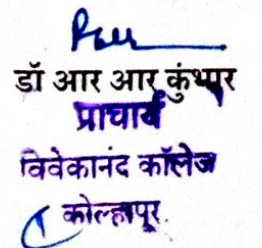 डॉ आर आर कुंभार
प्राचार्य
विवेकानंद कॉलेज
कोल्हापूर.